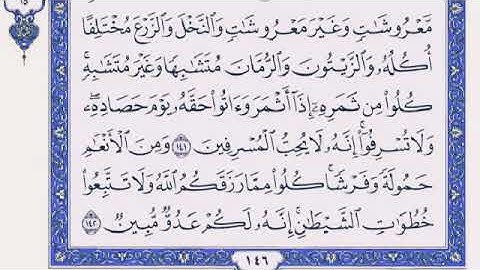 مَّعْرُوشَٰتٍ وَغَيْرَ مَعْرُوشَٰتٍ وَٱلنَّخْلَ وَٱلزَّرْعَ مُخْتَلِفًا
أُكُلُهُۥ وَٱلزَّيْتُونَ وَٱلرُّمَّانَ مُتَشَٰبِهًا وَغَيْرَ مُتَشَٰبِهٍۚ
كُلُوا۟ مِن ثَمَرِهِۦٓ إِذَآ أَثْمَرَ وَءَاتُوا۟ حَقَّهُۥ يَوْمَ حَصَادِهِۦۖ
وَلَا تُسْرِفُوٓا۟ۚ إِنَّهُۥ لَا يُحِبُّ ٱلْمُسْرِفِينَ ١٤١ وَمِنَ ٱلْأَنْعَٰمِ
حَمُولَةً وَفَرْشًاۚ كُلُوا۟ مِمَّا رَزَقَكُمُ ٱللَّهُ وَلَا تَتَّبِعُوا۟
خُطُوَٰتِ ٱلشَّيْطَٰنِۚ إِنَّهُۥ لَكُمْ عَدُوٌّ مُّبِينٌ ١٤٢
١٤٦